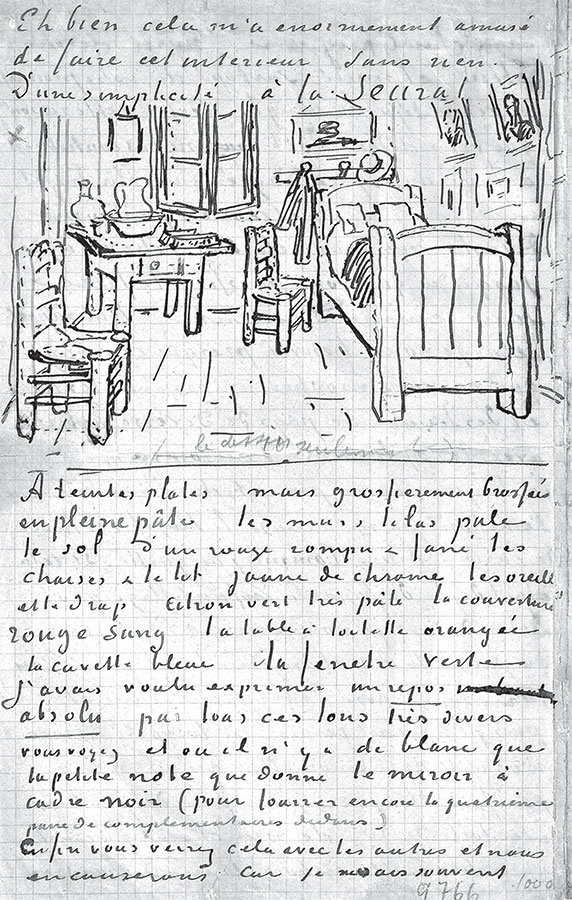 Eh bien cela m'a enormement amusé
de faire cet interieur sans rien.
D'une simplicité à la Seurat
(le dessin seulement)
A teintes plates mais grossierement brossées
en pleine pâte les murs lilas pale
le sol d'un rouge rompu & fané les
chaises & le lit jaune de chrome les oreillers
et le drap citron vert très pâle la couverture
rouge sang la table à toilette orangée
la cuvette bleue la fenetre verte
J'avais voulu exprimer un repos
absolu par tous ces tons très divers
vous voyez et ou il n'y a de blanc que
la petite note que donne le miroir à
cadre noir (pour fourrer encore la quatrieme
paire de complementaires dedans)
Enfin vous verrez cela avec les autres et nous
en causerons car je ne sais souvent
9766 1000